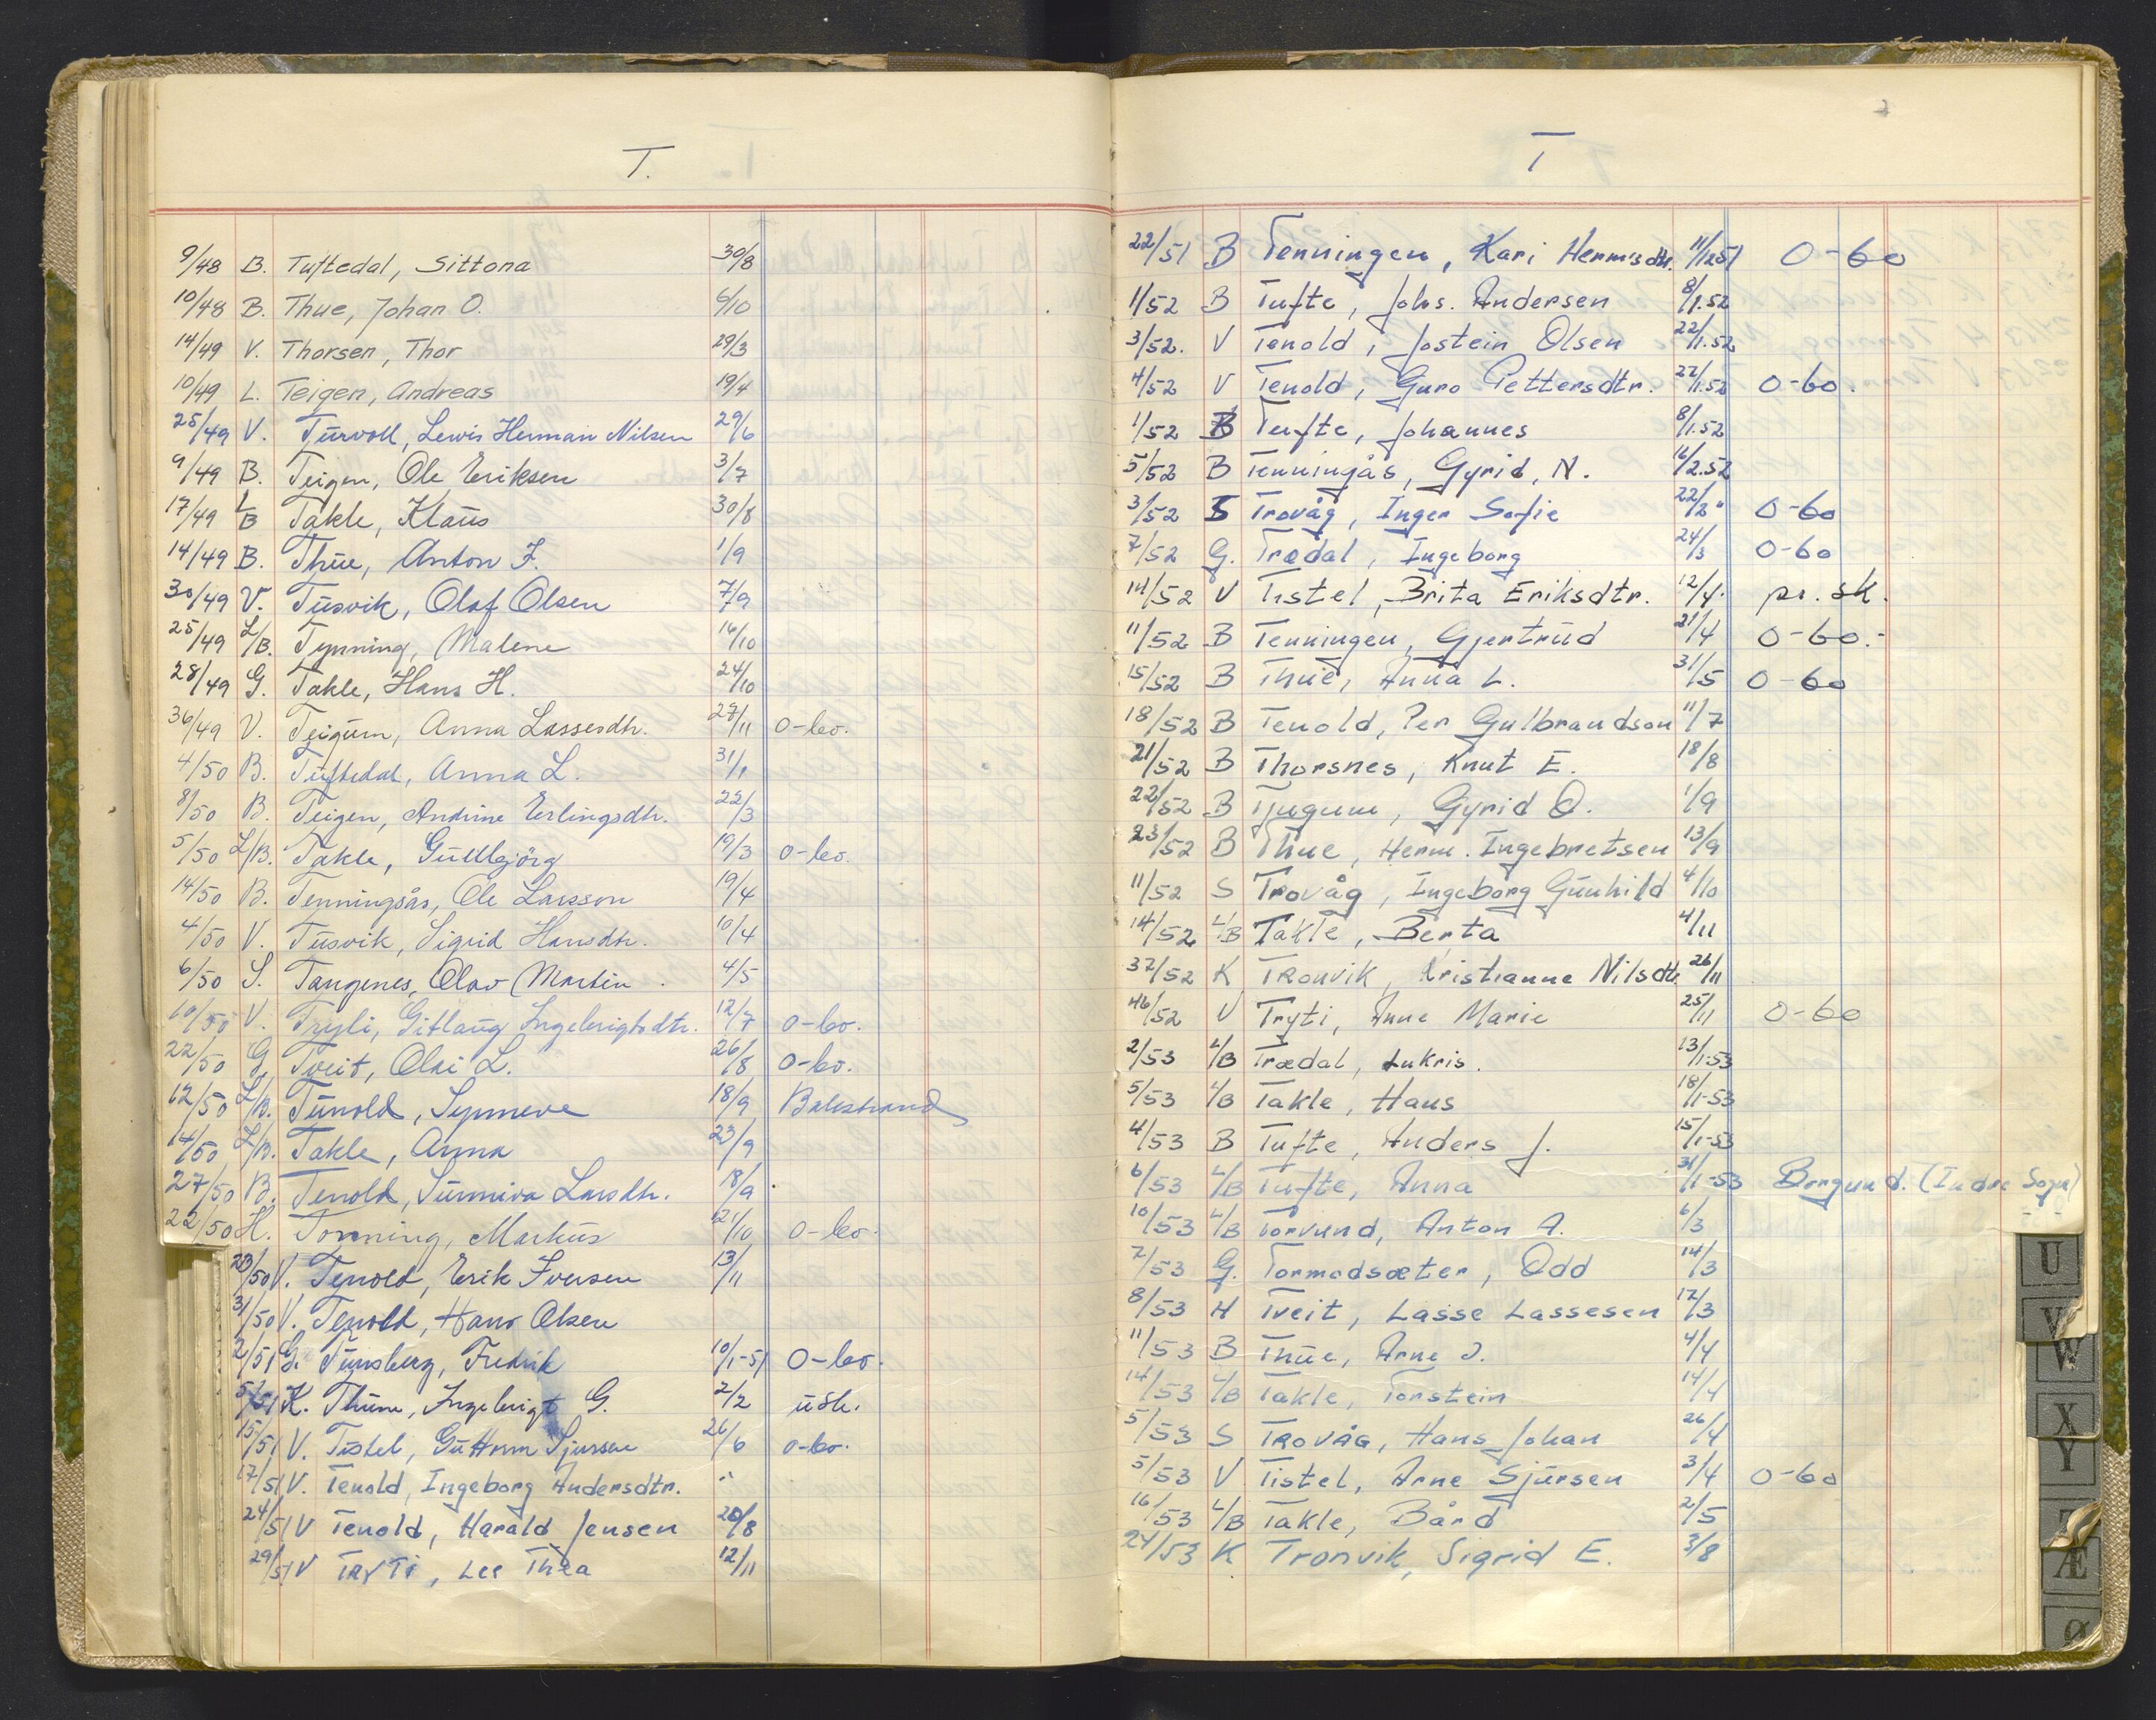 T.
9/48 B. Tuftedal, Sittona 30/8
10/48 B. Thue, Johan O. 6/10
14/49 V. Thorsen, Thor 29/3
10/49 L. Teigen, Andreas 19/4
25/49 V. Turvoll, Lewis Herman Nilsen 29/6
9/49 B. Teigen, Ole Eriksen 3/7
17/49 L/B Takle, Klaus 30/8
14/49 B. Thue, Anton J. 1/9
30/49 V. Tusvik, Olaf Olsen 7/9
25/49 L/B. Tynning, Malene 16/10
28/49 G. Takle, Hans H. 24/10
36/49 V. Teigum, Anna Lassesdtr. 27/11 0-bo.
4/50 B. Tuftedal, Anna L. 31/1
8/50 B. Teigen, Andrine Erlingsdtr. 22/3
5/50 L/B. Takle, Gullbjörg 19/3 0-bo.
14/50 B. Tenningsås, Ole Larsson 19/4
4/50 V. Tusvik, Sigrid Hansdtr. 10/4
6/50 S. Tangenes, Olav Martin 4/5
10/50 V. Gitlaug Ingebrigtsdtr. 12/7 0-bo.
22/50 G. Tveit, Olai L. 26/8 0-bo.
12/50 L/B. Tunold, Synneve 18/9 Balestrand
14/50 L/B. Takle, Anna 23/9
27/50 B. Tenold, Sunniva Larsdtr. 18/9
22/50 H. Torning, Markus 21/10 0-bo.
28/50 V. Tenold, Erik Iversen 13/11
31/50 V. Tenold, Hans Olsen
2/51 G. Tunsberg, Fredrik 10/1-51 0-bo.
5/51 K. Thune, Ingebrigt G. 2/2 usk.
15/51 V. Tistel, Guttorm Sjursen 26/6 0-bo.
17/51 V. Tenold, Ingeborg Andersdtr. "
24/51 V Tenold, Harald Jensen 20/8
29/51 V TRYTi, Lee Thea 12/11
T
22/51 B Tenningen, Kari Hermsdtr. 11/12 51 0-bo
1/52 B Tufte, Johs. Andersen 8/1.52
3/52. V Tenold, Jostein Olsen 22/1.52
4/52 V Tenold, Guro Pettersdtr. 22/1.52 0-bo.
1/52 B Tufte, Johannes 8/1.52
5/52 B Tenningås, Gyrid, N. 16/2.52
3/52 S Trovåg, Inger Sofie 22/2" 0-bo
7/52 G. Trædal, Ingeborg 24/3 0-bo
14/52 V Tistel, Brita Eriksdtr. 12/4. pr. sk.
11/52 B Tenningen, Gjertrud 21/4 0-bo.-
15/52 B Thue, Anna L. 31/5 0-bo
18/52 B Tenold, Per Gulbrandson 11/7
21/52 B Thorsnes, Knut E. 18/8
22/52 B Tjugum, Gyrid O. 1/9
23/52 B Thue, Herm. Ingebretsen 13/9
11/52 S Trovåg, Ingeborg Gunhild 4/10
14/52 L/B Takle, Berta 4/11
37/52 K TRonvik, Kristianne Nilsdtr 26/11
46/52 V Tryti, Anne Marie 25/11 0-bo
2/53 L/B Trædal, Lukris. 13/1-53
5/53 L/B Takle, Hans 18/1-53
4/53 B Tufte, Anders J. 15/1-53
6/53 L/B Tufte, Anna 31/1-53 Borgund. (Indre Sogn)
10/53 L/B Torvund, Anton A. 6/3
7/53 G. Tormodsæter, Odd 14/3
8/53 H Tveit, Lasse Lassesen 17/3
11/53 B Thue, Arne J. 4/4
14/53 L/B Takle, Torstein 14/4
5/53 S TROVÅG, Hans Johan 26/4
5/53 V Tistel, Arne Sjursen 3/4 0-bo
16/53 L/B Takle, Bård 2/5
24/53 K Tronvik, Sigrid E. 3/8
U
V
W
X
Y
Æ
Ø